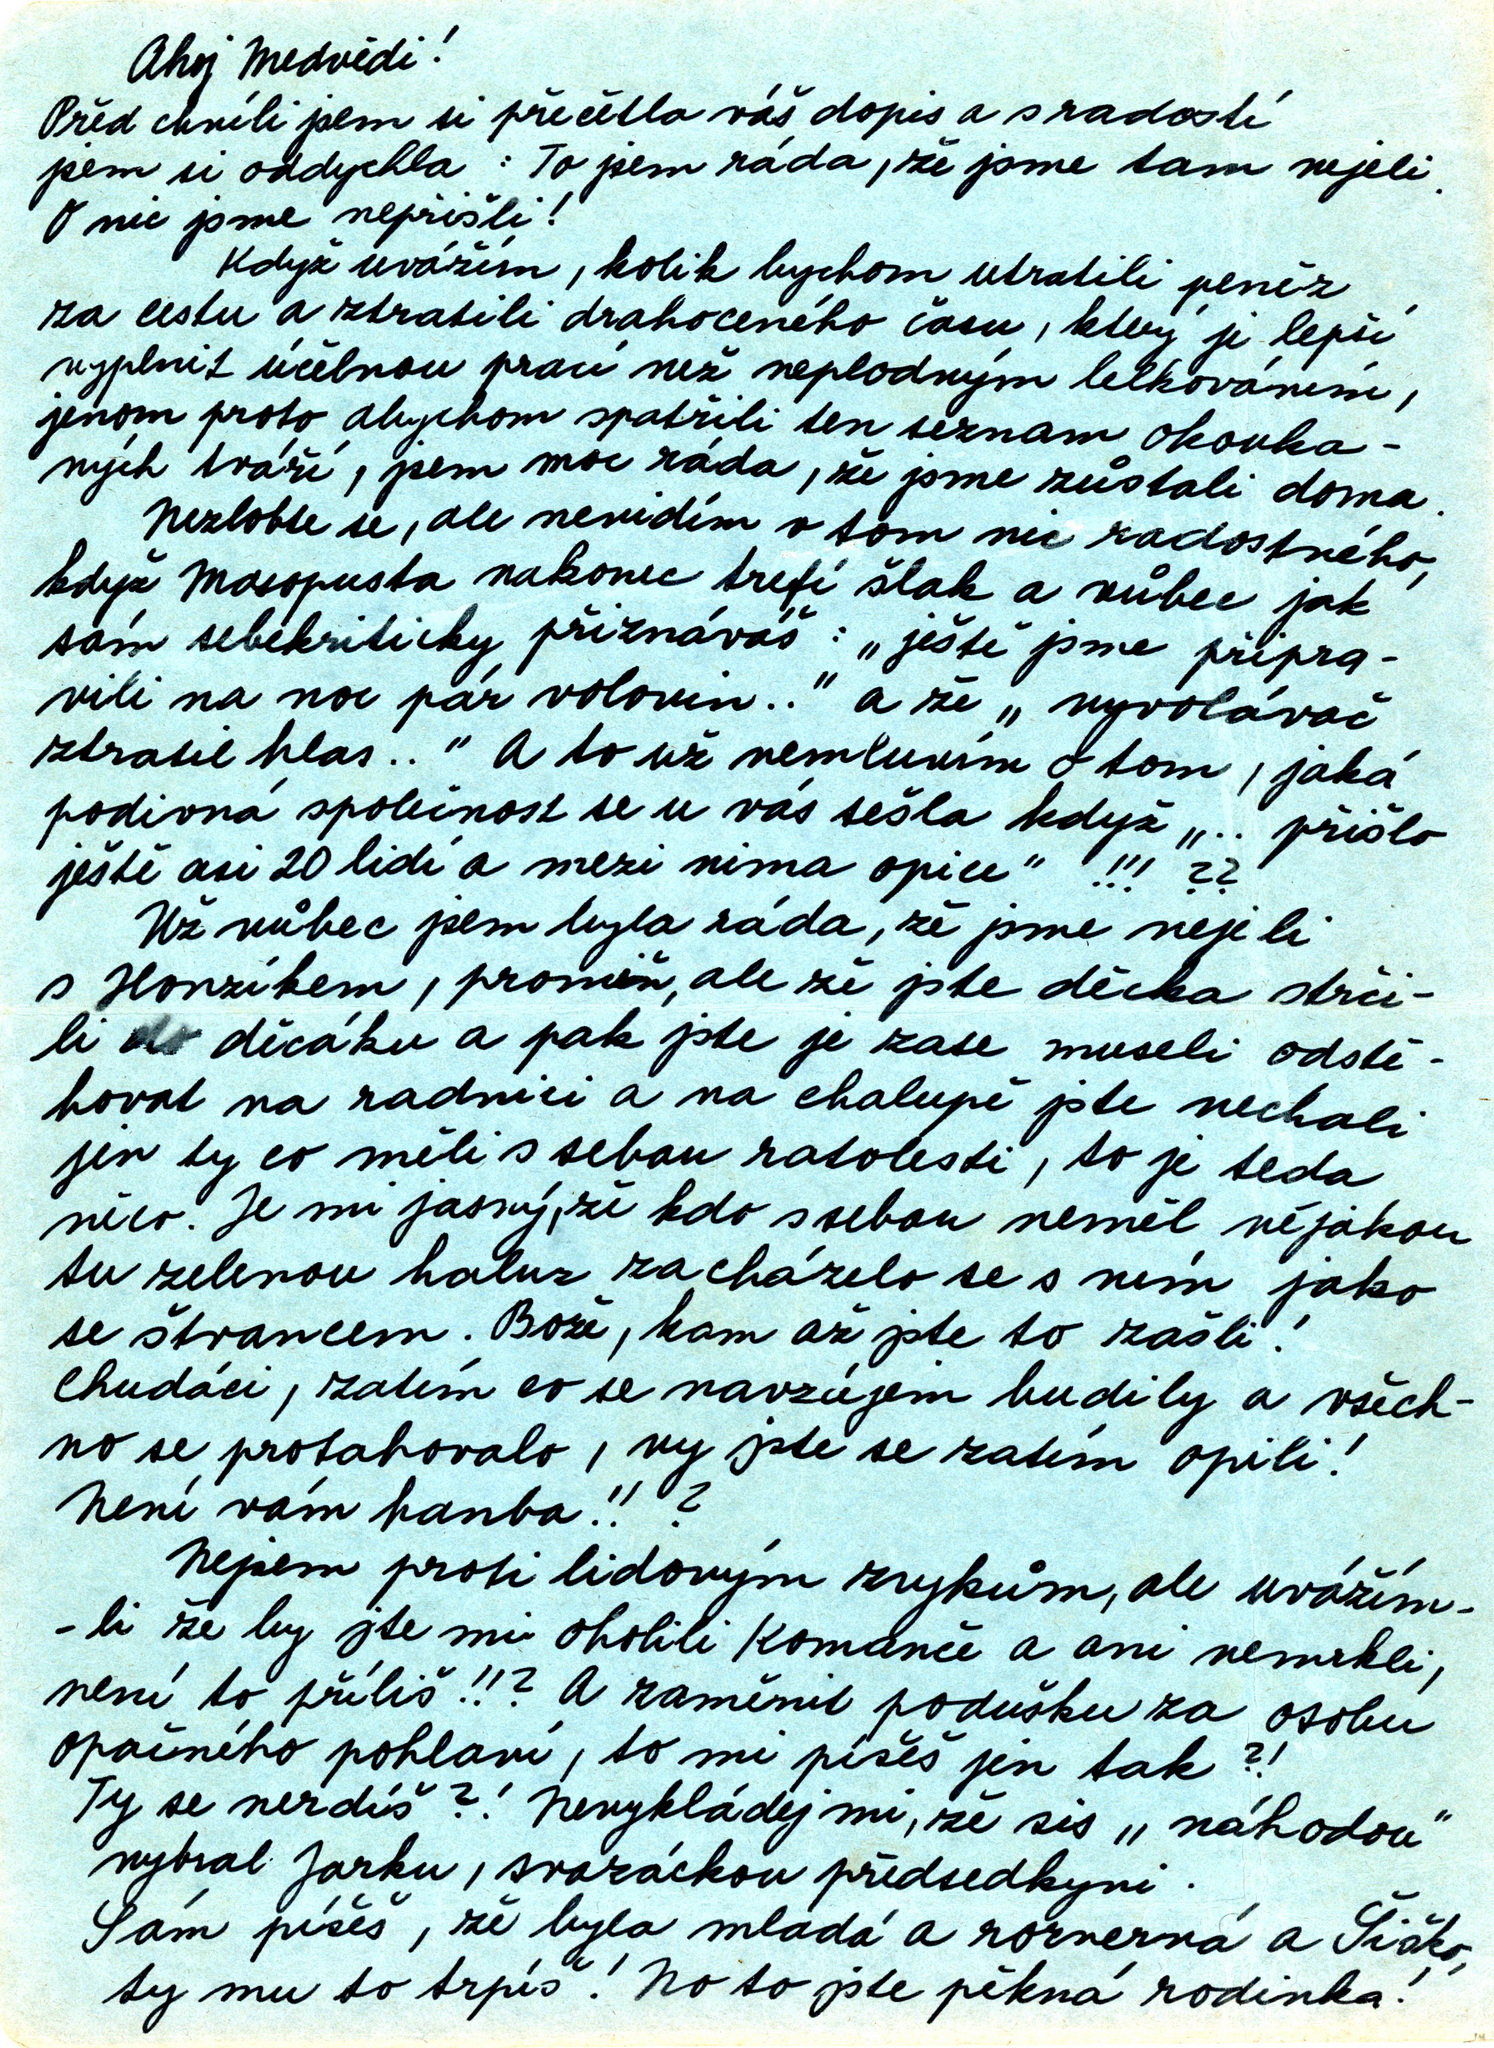 Ahoj Medvědi!
Před chvílí jsem si přečetla váš dopis a s radostí
jsem si oddychla : To jsem ráda, že jsme tam nejeli.
O nic jsme nepřišli!
Když uvážím, kolik bychom utratili peněz
za cestu a ztratili drahoceného času, který je lepší
vyplnit účelnou prací než neplodným lelkováním,
jenom proto abychom spatřili ten seznam okouka-
ných tváří, jsem moc ráda, že jsme zůstali doma.
Nezlobte se, ale nevidím v tom nic radostného,
když Masopusta nakonec trefí šlak a vůbec jak
sám sebekriticky přiznáváš : „ještě jsme připra-
vili na noc pár volovin.." a že „vyvolávač
ztratil hlas.." A to už nemluvím o tom, jaká
podivná společnost se u vás sešla když „.. přišlo
ještě asi 20 lidí a mezi nima opice" !!! ??
Už vůbec jsem byla ráda, že jsme nejeli
s Honzíkem, promiň, ale že jste děcka strči-
li do děcáku a pak jste je zase museli odstě-
hovat na radnici a na chalupě jste nechali
jen ty co měli s sebou ratolesti, to je teda
něco. Je mi jasný, že kdo s sebou neměl nějakou
tu zelenou haluz zacházelo se s ním jako
se štvancem. Bože, kam až jste to zašli!
Chudáci, zatím co se navzájem budily a všech-
no se protahovalo, vy jste se zatím opili!
Není vám hanba!! ?
Nejsem proti lidovým zvykům, ale uvážím-
-li že by jste mi oholili Komanče a ani nemrkli,
není to příliš!!? A zaměnit podušku za osobu
opačného pohlaví, to mi píšeš jen tak?!
Ty se nerdíš?! Nevykládej mi, že sis „náhodou"
vybral Jarku, svazáckou předsedkyni.
Sám píšeš, že byla mladá a rozverná a Šiško,
ty mu to trpíš! No to jste pěkná rodinka!